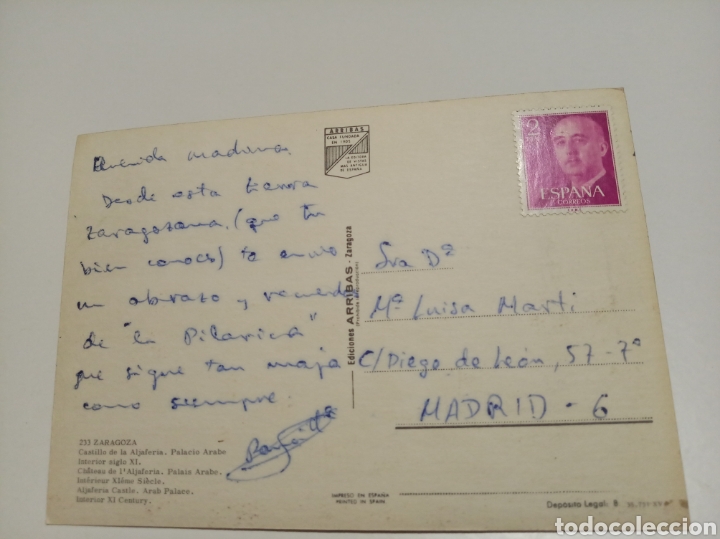 Querida madrina.
Desde esta tierra
Zaragozana, (que tu
bien conoces) te envio
un abrazo y recuerdo
de "la Pilarica"
que sigue tan maja
como siempre.
233 ZARAGOZA
Castillo de la Aljafería. Palacio Arabe
Interior siglo XI.
Château de l'Aljaferia. Palais Arabe.
Intérieur XIème Siècle.
Aljaferia Castle. Arab Palace.
Interior XI Century.
ARRIBAS
CASA FUNDADA
EN 1905
LA EDITORA
MAS ANTIGUA
DE ESPAÑA
Ediciones ARRIBAS - Zaragoza
IMPRESO EN ESPAÑA
PRINTED IN SPAIN
2
ESPAÑA
CORREOS
Sra Dª
Mª Luisa Marti
C/ Diego de León, 57-7º
MADRID - 6
Depósito Legal: B
todocoleccion